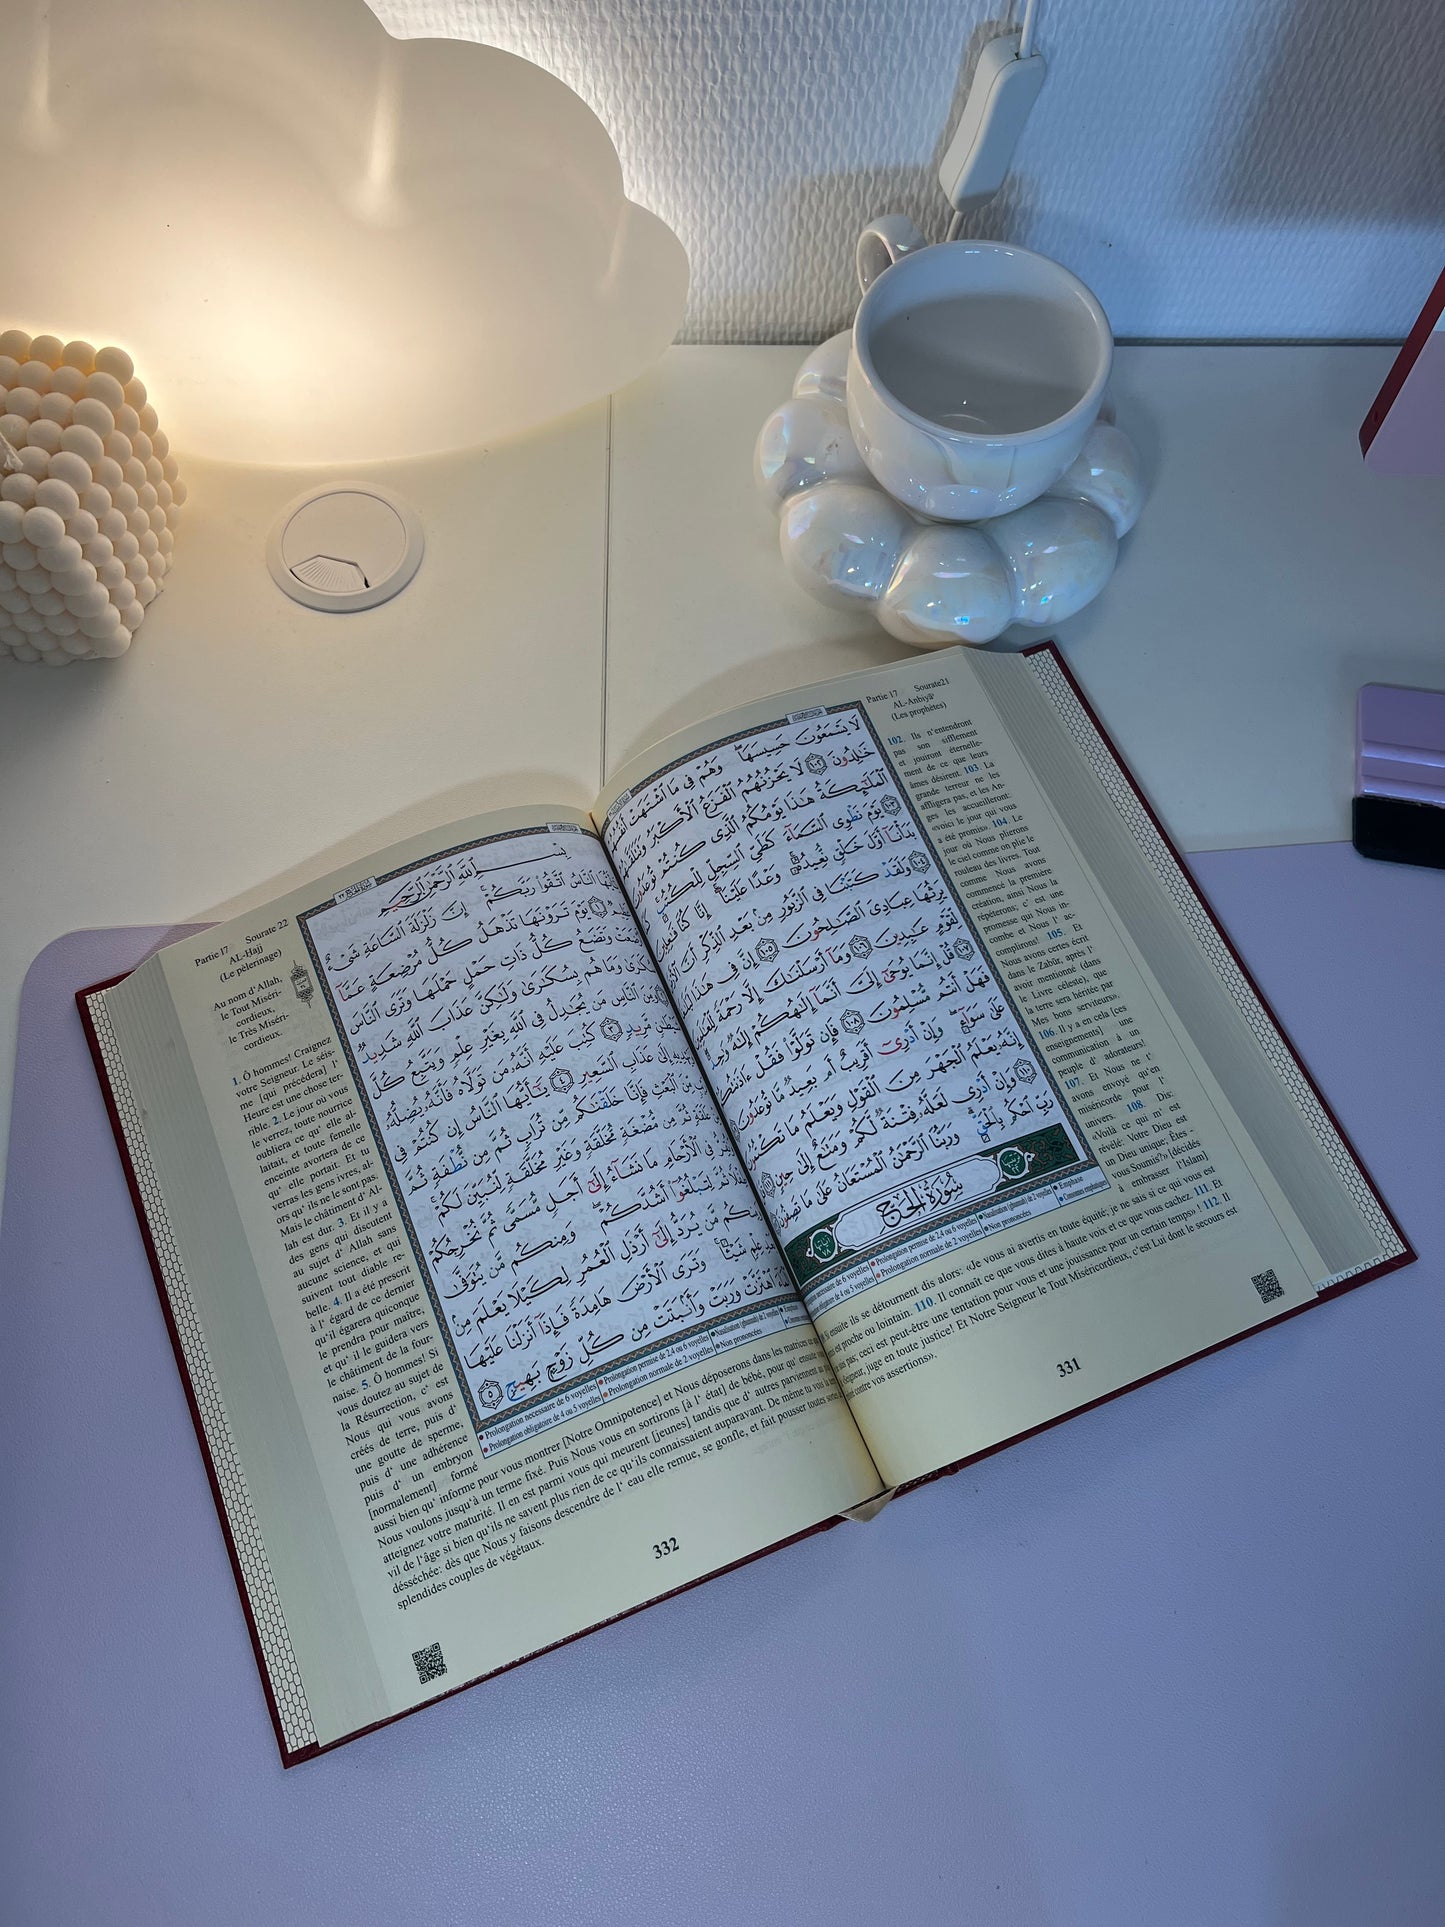 Partie 17 Sourate21
AL-Anbiyā'
(Les prophètes)
لَا يَسْمَعُونَ حَسِيسَهَا وَهُمْ فِي مَا ٱشْتَهَتْ
خَٰلِدُونَ ١٠٢ لَا يَحْزُنُهُمُ ٱلْفَزَعُ ٱلْأَكْبَرُ وَتَتَلَقَّىٰهُمُ
ٱلْمَلَٰٓئِكَةُ هَٰذَا يَوْمُكُمُ ٱلَّذِي كُنتُمْ تُوعَدُونَ
١٠٣ يَوْمَ نَطْوِي ٱلسَّمَآءَ كَطَيِّ ٱلسِّجِلِّ لِلْكُتُبِ
بَدَأْنَآ أَوَّلَ خَلْقٍ نُّعِيدُهُۥ وَعْدًا عَلَيْنَآ إِنَّا كُنَّا فَٰعِلِينَ
١٠٤ وَلَقَدْ كَتَبْنَا فِي ٱلزَّبُورِ مِنۢ بَعْدِ ٱلذِّكْرِ أَنَّ
يَرِثُهَا عِبَادِيَ ٱلصَّٰلِحُونَ ١٠٥ إِنَّ فِي هَٰذَا
لِّقَوْمٍ عَٰبِدِينَ ١٠٦ وَمَآ أَرْسَلْنَٰكَ إِلَّا رَحْمَةً لِّلْعَٰلَمِينَ
١٠٧ قُلْ إِنَّمَا يُوحَىٰٓ إِلَيَّ أَنَّمَآ إِلَٰهُكُمْ إِلَٰهٌ وَٰحِدٌ
فَهَلْ أَنتُم مُّسْلِمُونَ ١٠٨ فَإِن تَوَلَّوْا۟ فَقُلْ ءَاذَنتُكُمْ
عَلَىٰ سَوَآءٍ وَإِنْ أَدْرِيٓ أَقَرِيبٌ أَم بَعِيدٌ مَّا تُوعَدُونَ
إِنَّهُۥ يَعْلَمُ ٱلْجَهْرَ مِنَ ٱلْقَوْلِ وَيَعْلَمُ مَا تَكْتُمُونَ
١١٠ وَإِنْ أَدْرِي لَعَلَّهُۥ فِتْنَةٌ لَّكُمْ وَمَتَٰعٌ إِلَىٰ حِينٍ ١١١
رَبِّ ٱحْكُم بِٱلْحَقِّ وَرَبُّنَا ٱلرَّحْمَٰنُ ٱلْمُسْتَعَانُ عَلَىٰ مَا تَصِفُونَ
سُورَةُ الْحَجِّ
Prolongation permise de 2,4 ou 6 voyelles Nasalisation (ghunnah) de 2 voyelles Emphase
Prolongation normale de 2 voyelles Non prononcées Consonnes emphatiques
102. Ils n'entendront
pas son sifflement
et jouiront éternelle-
ment de ce que leurs
âmes désirent. 103. La
grande terreur ne les
affligera pas, et les An-
ges les accueilleront:
«voici le jour qui vous
a été promis». 104. Le
jour où Nous plierons
le ciel comme on plie le
rouleau des livres. Tout
comme Nous avons
commencé la première
création, ainsi Nous la
répéterons; c' est une
promesse qui Nous in-
combe et Nous l' ac-
complirons! 105. Et
Nous avons certes écrit
dans le Zabūr, après l'
avoir mentionné (dans
le Livre céleste), que
la terre sera héritée par
Mes bons serviteurs».
106. Il y a en cela [ces
enseignements] une
communication à un
peuple d' adorateurs!
107. Et Nous ne t'
avons envoyé qu'en
miséricorde pour l'
univers. 108. Dis:
«Voilà ce qui m' est
révélé: Votre Dieu est
un Dieu unique; Êtes -
vous Soumis?» [décidés
à embrasser l'Islam]
Si ensuite ils se détournent dis alors: «Je vous ai avertis en toute équité; je ne sais si ce qui vous est
est proche ou lointain. 110. Il connaît ce que vous dites à haute voix et ce que vous cachez. 111. Et
sais pas; ceci est peut-être une tentation pour vous et une jouissance pour un certain temps»! 112. Il
Seigneur, juge en toute justice! Et Notre Seigneur le Tout Miséricordieux, c'est Lui dont le secours est
contre vos assertions».
331
Partie 17 Sourate 22
AL-Hajj
(Le pèlerinage)
بِسْمِ ٱللَّهِ ٱلرَّحْمَٰنِ ٱلرَّحِيمِ
ٱلنَّاسُ ٱتَّقُوا۟ رَبَّكُمْ إِنَّ زَلْزَلَةَ ٱلسَّاعَةِ شَيْءٌ
١ يَوْمَ تَرَوْنَهَا تَذْهَلُ كُلُّ مُرْضِعَةٍ عَمَّآ
وَتَضَعُ كُلُّ ذَاتِ حَمْلٍ حَمْلَهَا وَتَرَى ٱلنَّاسَ
سُكَٰرَىٰ وَمَا هُم بِسُكَٰرَىٰ وَلَٰكِنَّ عَذَابَ ٱللَّهِ شَدِيدٌ
وَمِنَ ٱلنَّاسِ مَن يُجَٰدِلُ فِي ٱللَّهِ بِغَيْرِ عِلْمٍ وَيَتَّبِعُ كُلَّ
شَيْطَٰنٍ مَّرِيدٍ ٣ كُتِبَ عَلَيْهِ أَنَّهُۥ مَن تَوَلَّاهُ فَأَنَّهُۥ يُضِلُّهُۥ
إِلَىٰ عَذَابِ ٱلسَّعِيرِ ٤ يَٰٓأَيُّهَا ٱلنَّاسُ إِن كُنتُمْ فِي
مِّنَ ٱلْبَعْثِ فَإِنَّا خَلَقْنَٰكُم مِّن تُرَابٍ ثُمَّ مِن نُّطْفَةٍ ثُمَّ
ثُمَّ مِن مُّضْغَةٍ مُّخَلَّقَةٍ وَغَيْرِ مُخَلَّقَةٍ لِّنُبَيِّنَ لَكُمْ
فِي ٱلْأَرْحَامِ مَا نَشَآءُ إِلَىٰٓ أَجَلٍ مُّسَمًّى ثُمَّ نُخْرِجُكُمْ
ثُمَّ لِتَبْلُغُوٓا۟ أَشُدَّكُمْ وَمِنكُم مَّن يُتَوَفَّىٰ
وَمِنكُم مَّن يُرَدُّ إِلَىٰٓ أَرْذَلِ ٱلْعُمُرِ لِكَيْلَا يَعْلَمَ مِنۢ
بَعْدِ عِلْمٍ شَيْـًٔا وَتَرَى ٱلْأَرْضَ هَامِدَةً فَإِذَآ أَنزَلْنَا عَلَيْهَا
ٱهْتَزَّتْ وَرَبَتْ وَأَنۢبَتَتْ مِن كُلِّ زَوْجٍۭ بَهِيجٍ ٥
Prolongation necessaire de 6 voyelles Prolongation permise de 2,4 ou 6 voyelles Nasalisation (ghunnah) de 2 voyelles Emphase
Prolongation obligatoire de 4 ou 5 voyelles Prolongation normale de 2 voyelles Non prononcées
Au nom d'Allah,
le Tout Miséri-
cordieux,
le Très Miséri-
cordieux.
1. Ô hommes! Craignez
votre Seigneur. Le séis-
me [qui précédera] l'
Heure est une chose ter-
rible. 2. Le jour où vous
le verrez, toute nourrice
oubliera ce qu' elle al-
laitait, et toute femelle
enceinte avortera de ce
qu' elle portait. Et tu
verras les gens ivres, al-
ors qu' ils ne le sont pas.
Mais le châtiment d' Al-
lah est dur. 3. Et il y a
des gens qui discutent
au sujet d' Allah sans
aucune science, et qui
suivent tout diable re-
belle. 4. Il a été prescrit
à l' égard de ce dernier
qu'il égarera quiconque
le prendra pour maître,
et qu' il le guidera vers
le châtiment de la four-
naise. 5. Ô hommes! Si
vous doutez au sujet de
la Résurrection, c' est
Nous qui vous avons
créés de terre, puis d'
une goutte de sperme,
puis d' une adhérence
puis d' un embryon
[normalement] formé
aussi bien qu' informe pour vous montrer [Notre Omnipotence] et Nous déposerons dans les matrices ce que
Nous voulons jusqu'à un terme fixé. Puis Nous vous en sortirons [à l' état] de bébé, pour qu' ensuite vous
atteignez votre maturité. Il en est parmi vous qui meurent [jeunes] tandis que d' autres parviennent au plus
vil de l'âge si bien qu'ils ne savent plus rien de ce qu'ils connaissaient auparavant. De même tu vois la terre
désséchée: dès que Nous y faisons descendre de l' eau elle remue, se gonfle, et fait pousser toutes sortes de
splendides couples de végétaux.
332